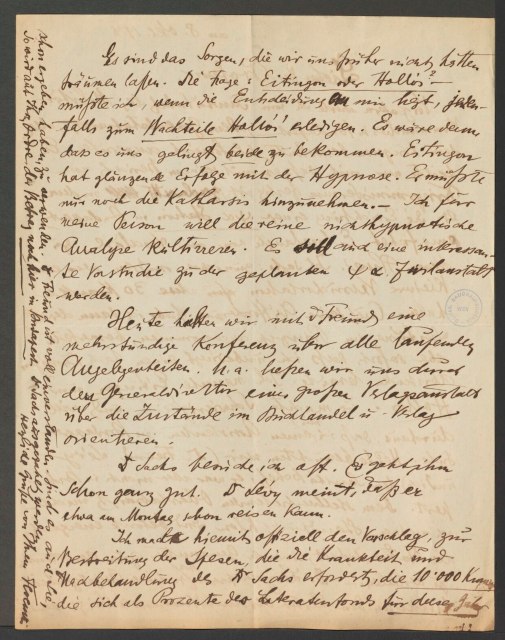 Es sind das Sorgen, die wir uns früher nicht hätten
träumen lassen. Die Frage: Eitingon oder Hollós?
müßte ich, wenn die Entscheidung an mir liegt, jeden-
falls zum Nachteile Hollós' erledigen. Es wäre denn
dass es uns gelingt beide zu bekommen. Eitingon
hat glänzende Erfolge mit der Hypnose. Er müßte
nur noch die Katharsis hinzunehmen. – Ich für
meine Person will die reine nichthypnotische
Analyse kultivieren. Es soll auch eine interessan-
te Vorstudie zu der geplanten Ψα Zivilanstalt
werden.
Heute hatten wir mit Dr Freund eine
mehrstündige Konferenz über alle laufenden
Angelegenheiten. U. a. ließen wir uns durch
den Generaldirektor einer großen Verlagsanstalt
über die Zustände im Buchhandel u Verlag
orientieren.
Dr Sachs besuche ich oft. Es geht ihm
schon ganz gut. Dr Lévy meint, daß er
etwa am Montag schon reisen kann.
Ich mache hiemit offiziell den Vorschlag, zur
Bestreitung der Spesen, die die Krankheit und
Nachbehandlung des Dr Sachs erfordert, die 10'000 Kronen
die sich als Prozente des Literaturfonds für dieses Jahr
schon ergeben haben, zu verwenden. Dr Freund ist voll einverstanden. Sind es auch Sie,
so wird auf Ihre Ordre der Betrag noch hier in Budapest Dr Sachs ausgezahlt werden.
Herzliche Grüße von Ihrem Ferenczi